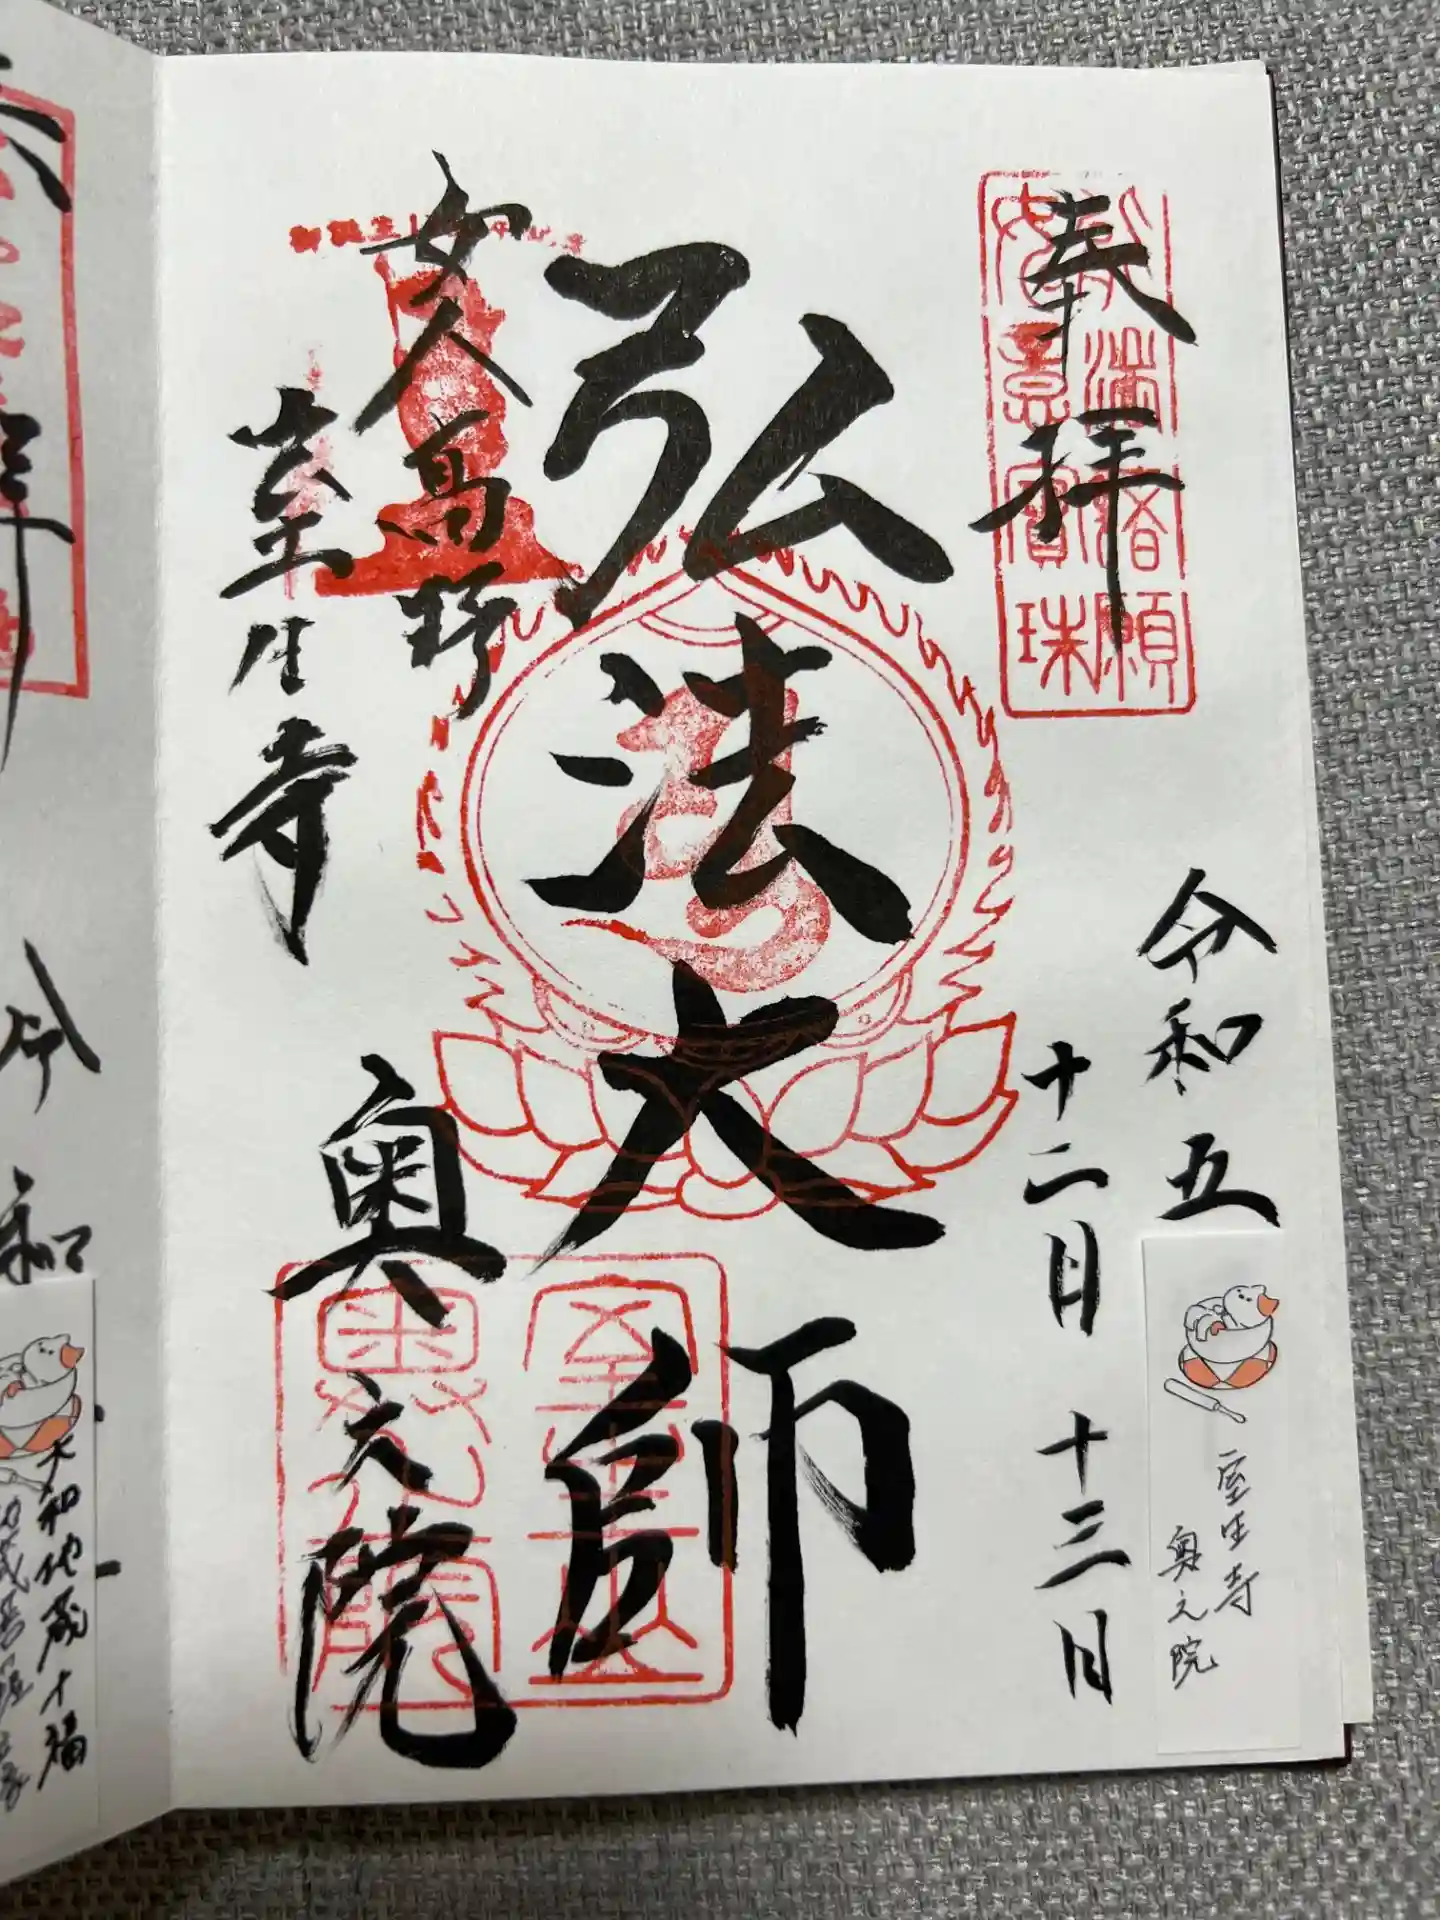 奉拝
令和五
十二月十三日
弘法大師
女人高野
室生寺
奥之院
如意寳珠
室生山
室生寺
奥之院
令和
大和地蔵十福